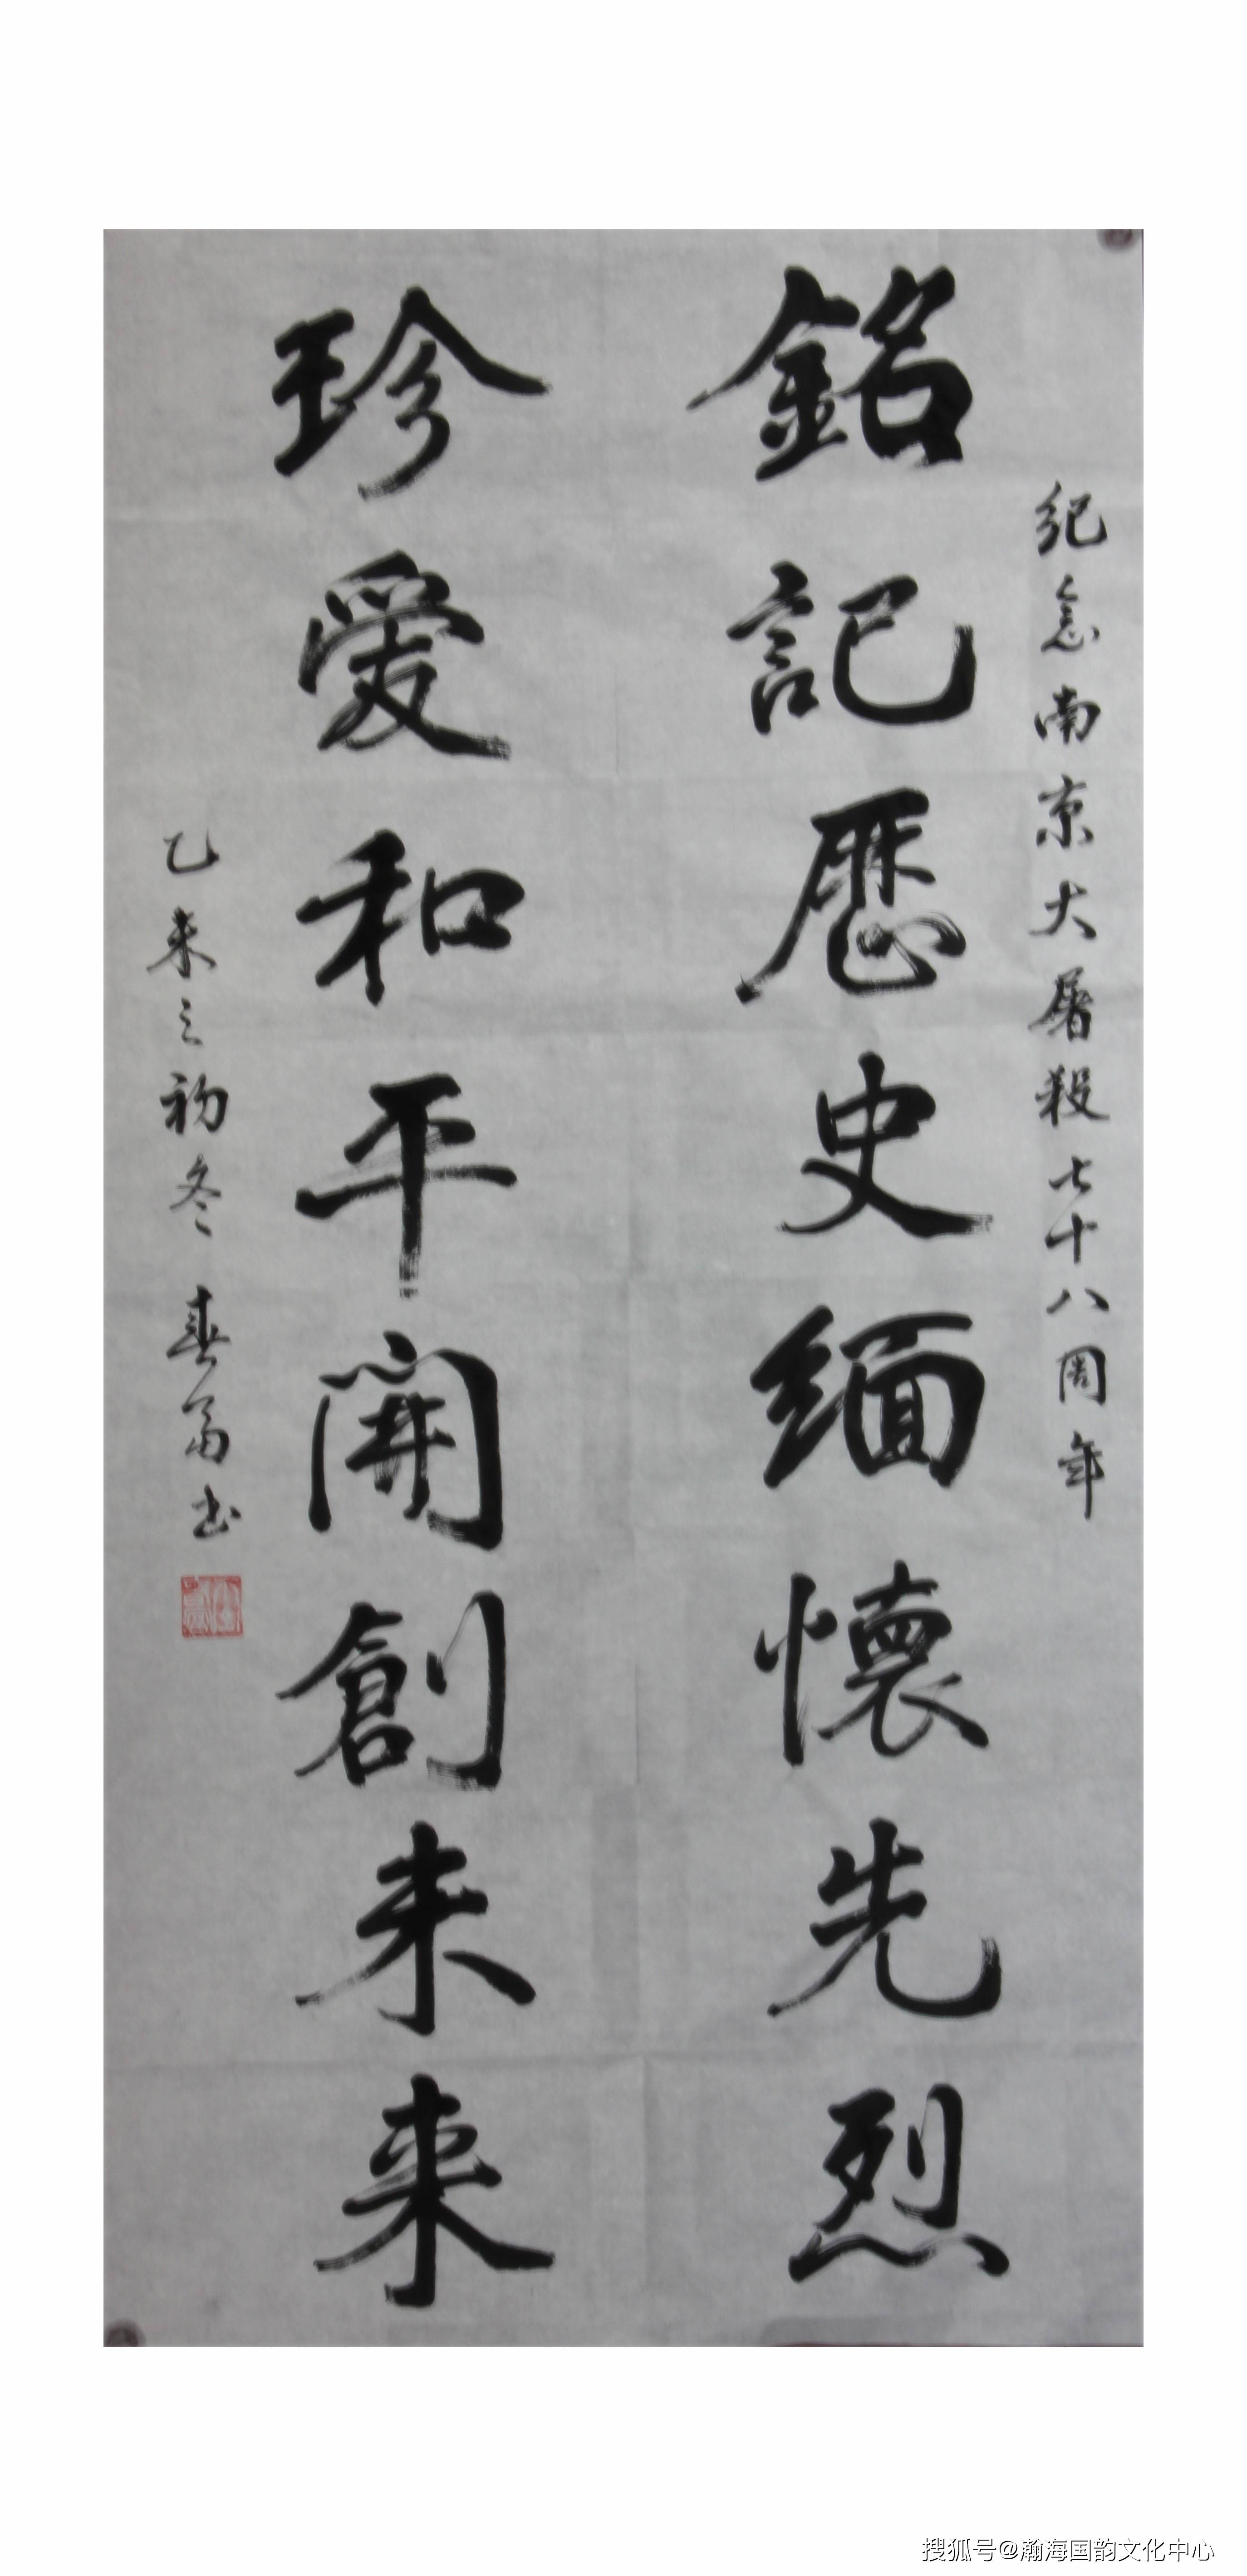 纪念南京大屠殺七十八周年
銘記歷史緬懷先烈
珍爱和平開創未来
乙未之初冬 春富书
搜狐号@瀚海国韵文化中心